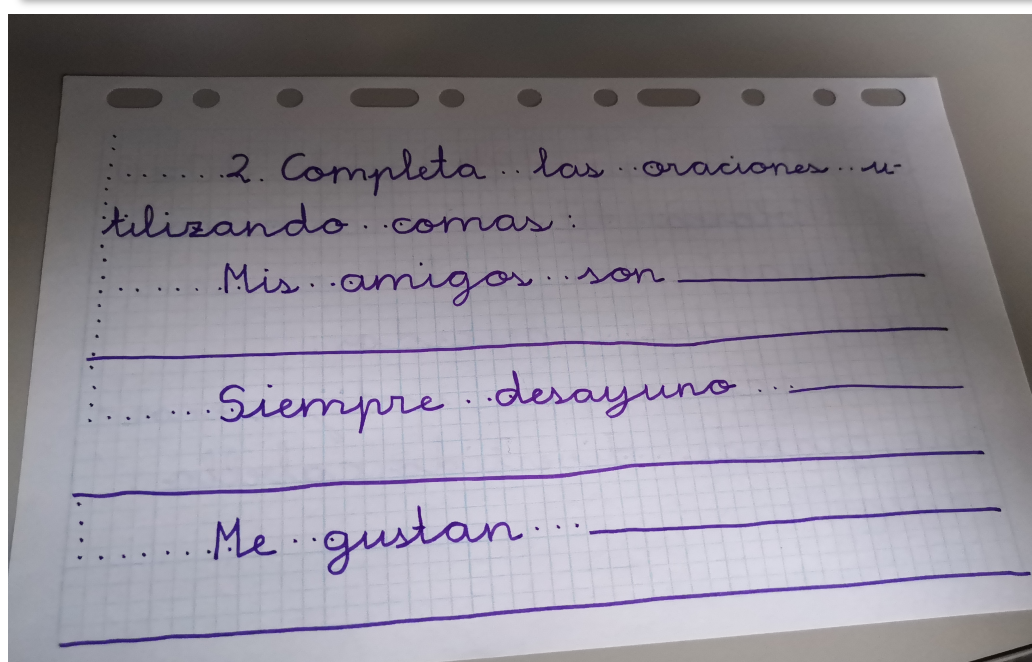 2. Completa las oraciones u-
tilizando comas:
Mis amigos son
Siempre desayuno
Me gustan